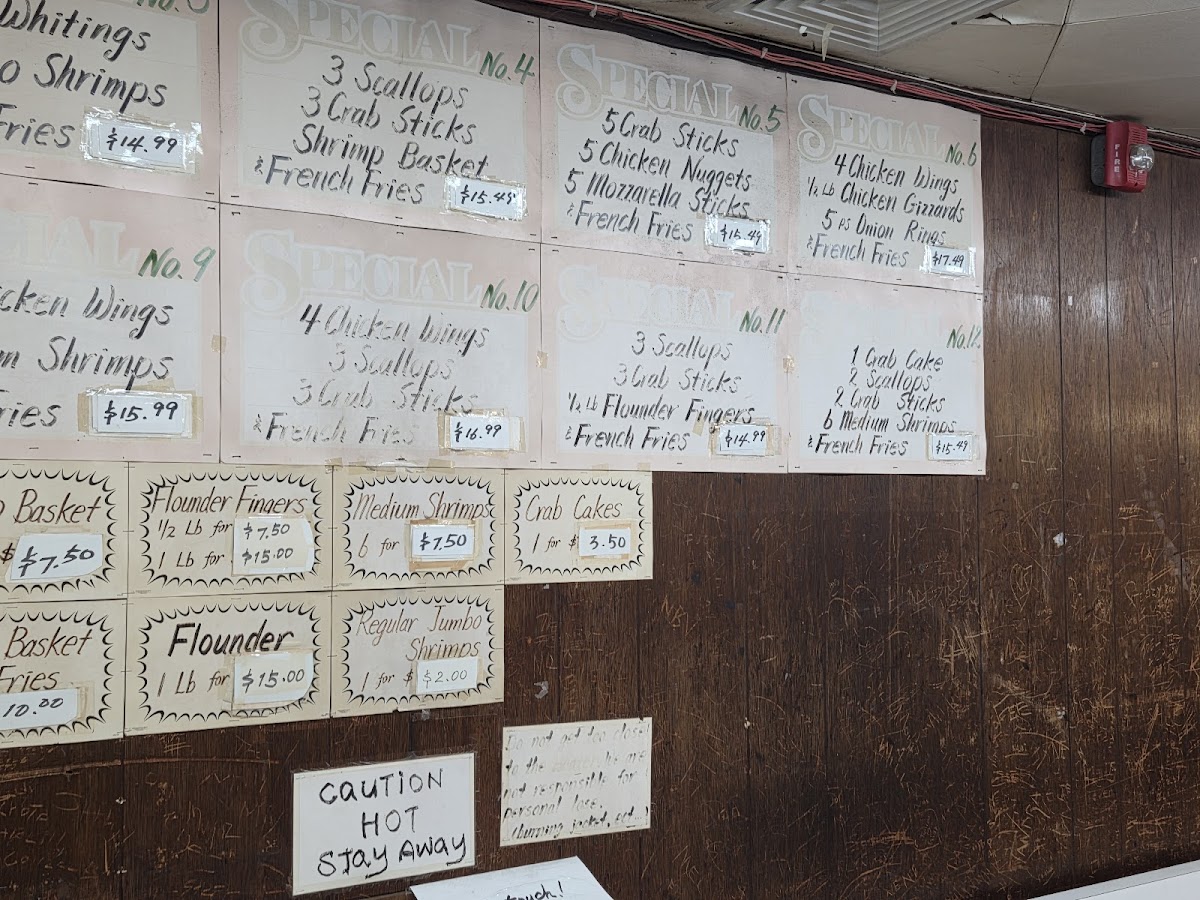 Whitings
o Shrimps
Fries $14.99
SPECIAL No.4
3 Scallops
3 Crab Sticks
Shrimp Basket
& French Fries $15.49
SPECIAL No.5
5 Crab Sticks
5 Chicken Nuggets
5 Mozzarella Sticks
& French Fries $15.49
SPECIAL No.6
4 Chicken Wings
1/2 Lb Chicken Gizzards
5 ps Onion Rings
& French Fries $17.49
No.9
cken Wings
m Shrimps
ries $15.99
SPECIAL No.10
4 Chicken Wings
3 Scallops
3 Crab Sticks
& French Fries $16.99
SPECIAL No.11
3 Scallops
3 Crab Sticks
1/2 Lb Flounder Fingers
& French Fries $14.99
No.12
1 Crab Cake
2 Scallops
2 Crab Sticks
6 Medium Shrimps
& French Fries $15.49
Basket
$ $7.50
Flounder Fingers
1/2 Lb for $7.50
1 Lb for $15.00
Medium Shrimps
6 for $7.50
Crab Cakes
1 for $ 3.50
Basket
Fries
10.00
Flounder
1 Lb for $15.00
Regular Jumbo
Shrimps
1 for $ $2.00
CAUTION
HOT
STAY AWAY
Do not get too close
to the
not responsible for
personal lose.
(burning jacket, ect...)
touch!
FIRE